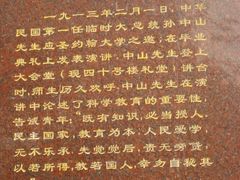 一九一三年二月一日，中华
民国第一任临时大总统孙中山
先生应岭南大学之邀，在毕业
典礼上发表演讲。中山先生登上
大会堂（现四十号楼礼堂）讲台
时，师生历久欢呼。中山先生在演
讲中论述了科学教育的重要性，
告诫青年：“既有知识，必当损人。
民主国家，教育为本：人民爱学，
无不乐承，先觉觉后，责无旁贷，
以若所得，教若国人，幸勿自秘其